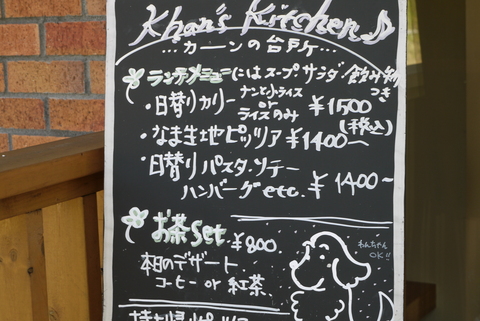 Khan's Kitchen♪
...カーンの台所...
ランチメニューにはスープサラダ/飲み物つき
・日替りカリー ナンと小ライス or ライスのみ ¥1500
(税込)
・なま生地ピッツァ ¥1400〜
・日替りパスタ.ソテー
ハンバーグetc. ¥1400〜
お茶set ¥800.
本日のデザート
コーヒー or 紅茶
わんちゃん
OK!!
持ち帰りピッツァ